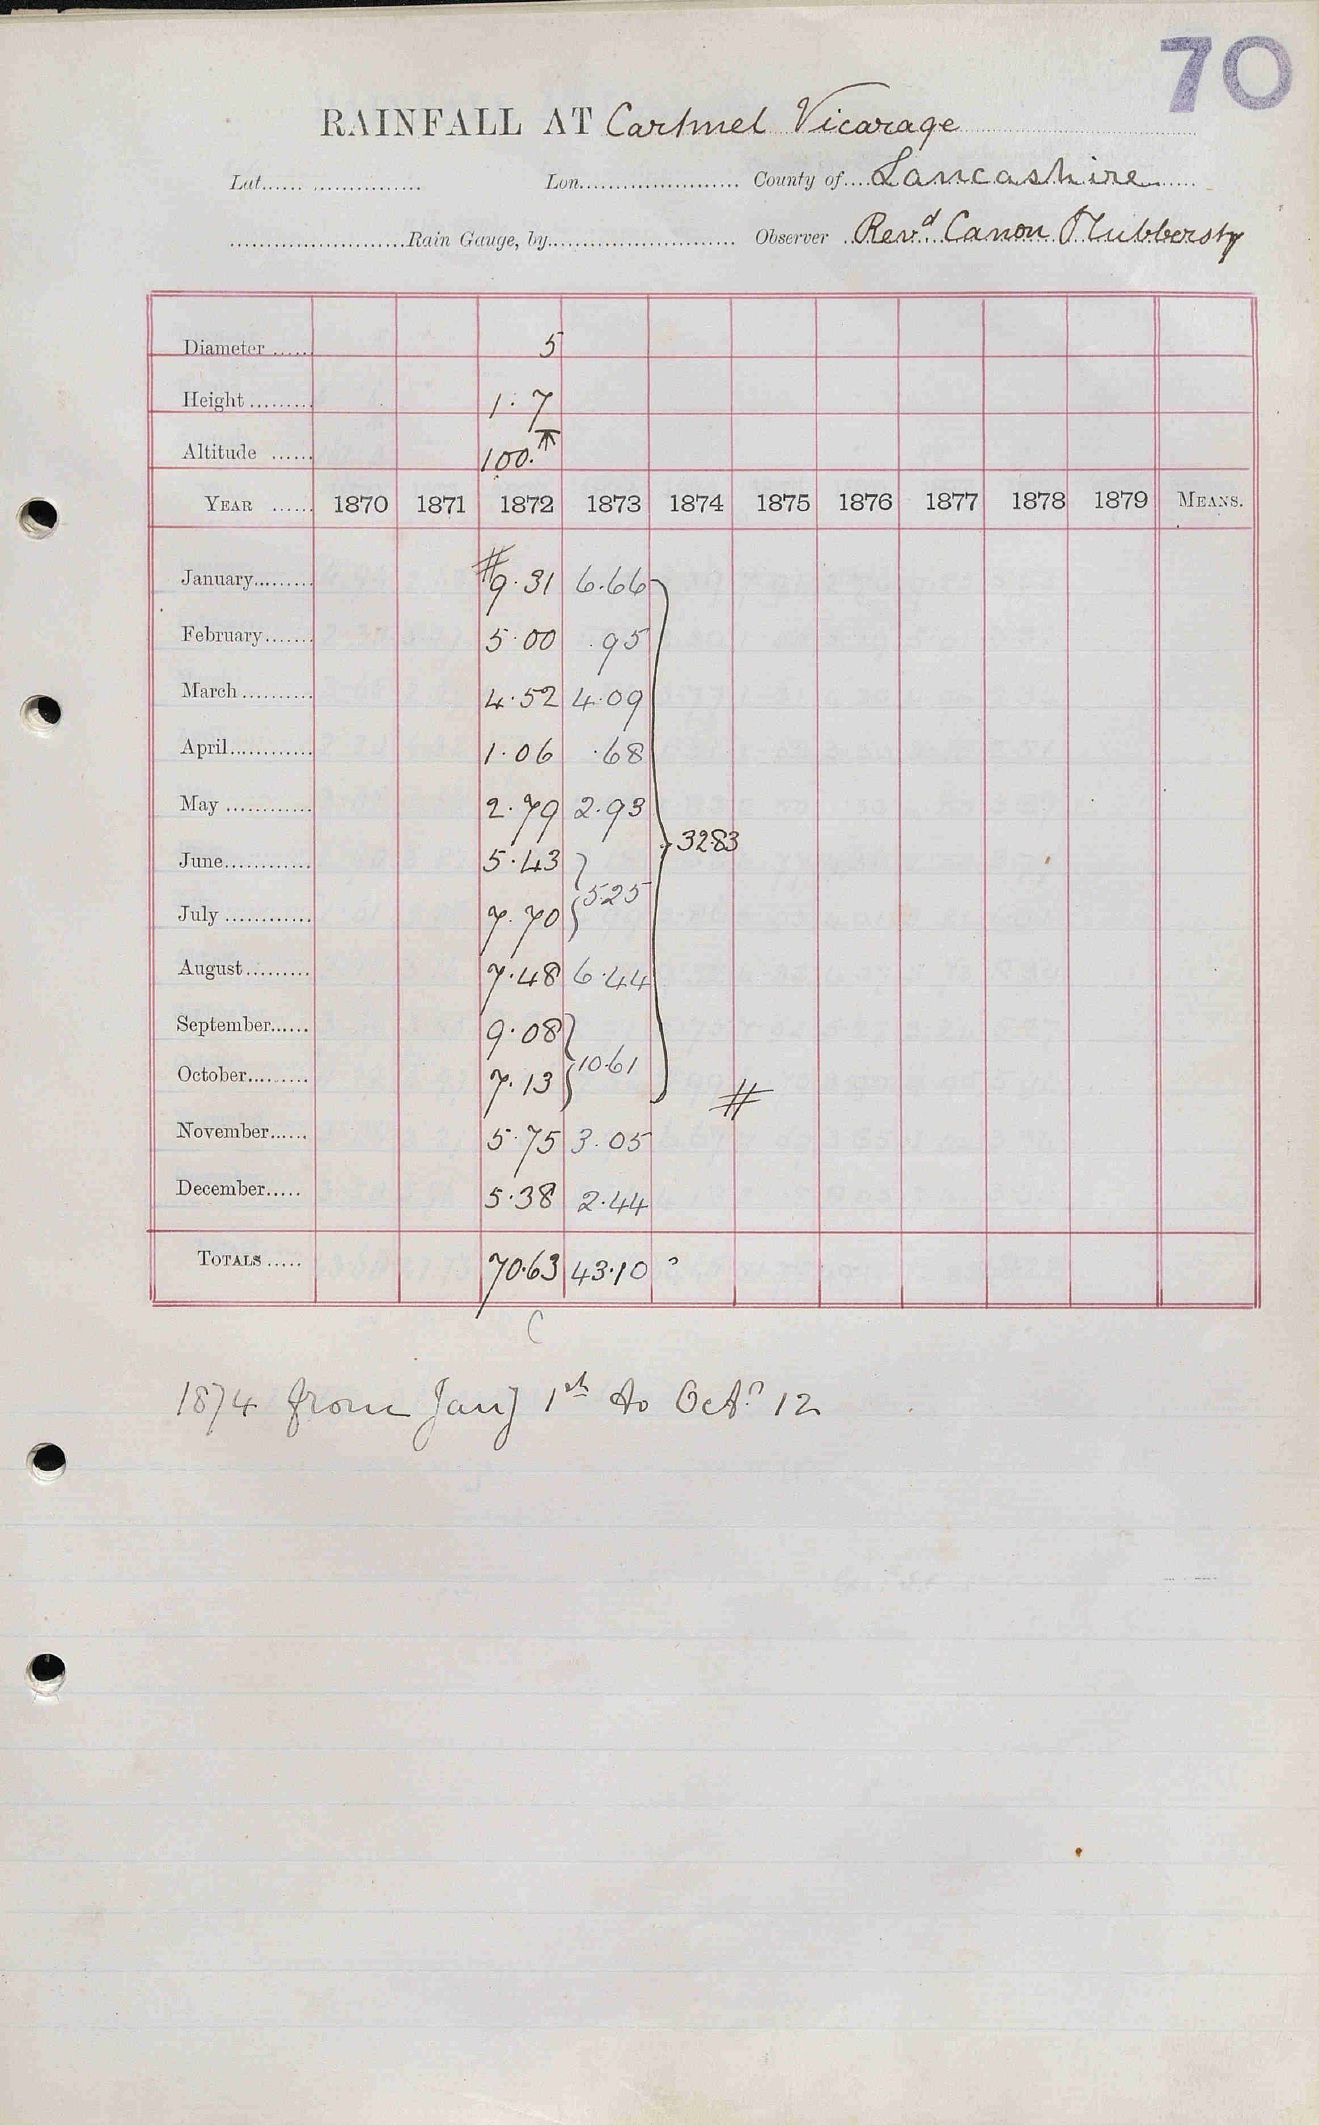 70
RAINFALL AT Cartmel Vicarage
Lat. Lon. County of Lancashire
Rain Gauge, by Observer Revd. Canon Hubbersty
Diameter 5
Height 1.7
Altitude 100.
YEAR 1870 1871 1872 1873 1874 1875 1876 1877 1878 1879 MEANS.
January # 9.31 6.66
February 5.00 .95
March 4.52 4.09
April 1.06 .68
May 2.79 2.93
3283
June 5.43
5.25
July 7.70
August 7.48 6.44
September 9.08
10.61
October 7.13 #
November 5.75 3.05
December 5.38 2.44
TOTALS 70.63 43.10 ?
C
1874 from Jany 1st to Octr 12